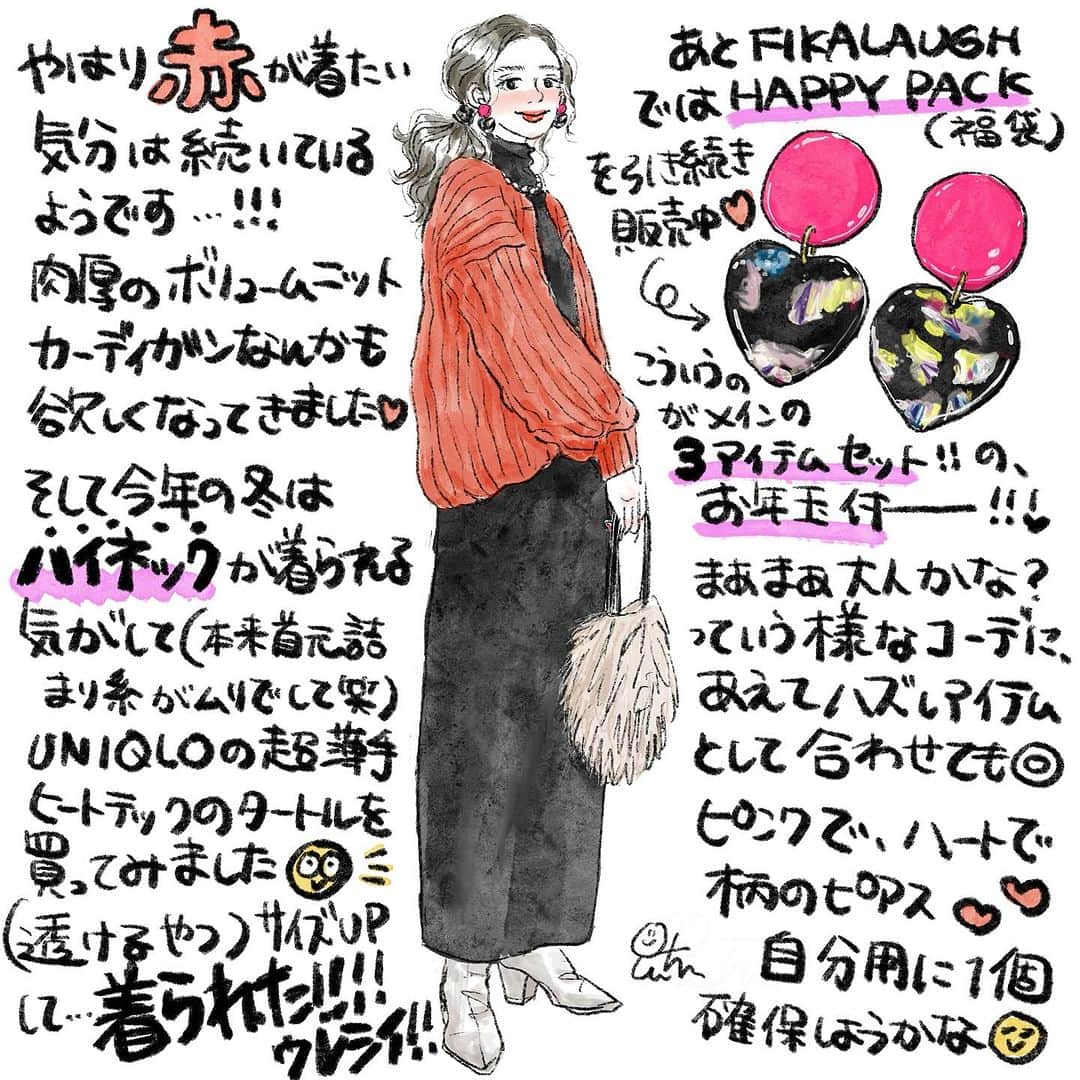 やはり赤が着たい
気分は続いている
ようです…!!!
肉厚のボリュームニット
カーディガンなんかも
欲しくなってきました♡
そして今年の冬は
ハイネックが着られる
気がして(本来首元詰
まり系がムリでして笑)
UNIQLOの超薄手
ヒートテックのタートルを
買ってみました
(透けるやつ)サイズUP
して…着られた!!!!
ウレシイ!!
あとFIKALAUGH
ではHAPPY PACK
(福袋)
を引き続き
販売中♡
こういうの
がメインの
3アイテムセット!!の、
お年玉付ー!!!
まぁまぁ大人かな?
っていう様なコーデに、
あえてハズしアイテム
として合わせても◎
ピンクで、ハートで
柄のピアス
自分用に1個
確保しようかな